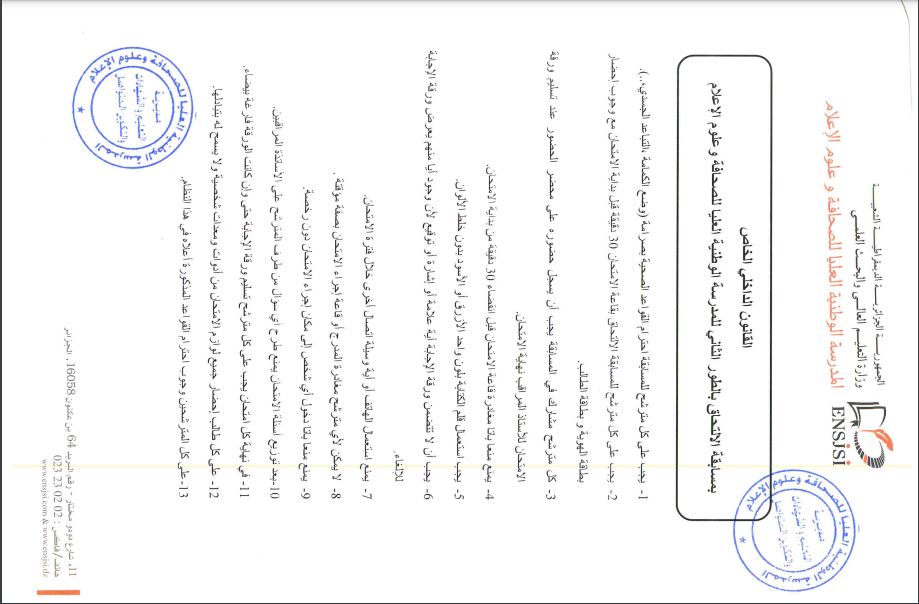 الجمهوريـــة الجزائريـــة الديمقراطيـــة الشعبيـــة
وزارة التعليـم العالـــي والبحـث العلمـي
المدرسة الوطنية العليا للصحافة و علوم الإعلام
ENSJSI
القانون الداخلي الخاص
بمسابقة الالتحاق بالطور الثاني للمدرسة الوطنية العليا للصحافة و علوم الإعلام
1- يجب على كل مترشح للمسابقة احترام القواعد الصحية بصرامة (وضع الكمامة ،التباعد الجسدي،..).
2- يجب على كل مترشح للمسابقة الالتحاق بقاعة الامتحان 30 دقيقة قبل بداية الامتحان مع وجوب إحضار
بطاقة الهوية و بطاقة الطالب.
3- كل مترشح مشارك في المسابقة يجب أن يسجل حضوره على محضر الحضور عند تسليم ورقة
الامتحان للأستاذ المراقب نهاية الامتحان.
4- يمنع منعا باتا مغادرة قاعة الامتحان قبل انقضاء 30 دقيقة من بداية الامتحان.
5- يجب استعمال قلم الكتابة بلون واحد الأزرق أو الأسود بدون خلط الألوان.
6- يجب أن لا تتضمن ورقة الإجابة أية علامة أو إشارة أو توقيع لأن وجود أيا منهم يعرض ورقة الإجابة
للإلغاء.
7- يمنع استعمال الهاتف أو أية وسيلة اتصال أخرى خلال فترة الامتحان.
8- لا يمكن لأي مترشح مغادرة المدرج أو قاعة إجراء الامتحان بصفة مؤقتة .
9- يمنع منعا باتا دخول أي شخص إلى مكان إجراء الامتحان دون رخصة.
10-بعد توزيع أسئلة الامتحان يمنع طرح أي سؤال من طرف المترشح على الأساتذة المراقبين.
11- في نهاية كل امتحان يجب على كل مترشح تسليم ورقة الإجابة حتى وإن كانت الورقة فارغة بيضاء.
12- على كل طالب إحضار جميع لوازم الامتحان من أدوات ومعدات شخصية ولا يسمح له بتبادلها.
13-على كل المترشحين وجوب احترام القواعد المذكورة أعلاه في هذا النظام.
المدرسة الوطنية العليا للصحافة وعلوم الإعلام
مديرية
التعليم و الشهادات
والتكوين المتواصل
المدرسة الوطنية العليا للصحافة وعلوم الإعلام
مديرية
التعليم و الشهادات
والتكوين المتواصل
11، شارع دودو مختار - رقم البريد 64 بن عكنون 16058، الجزائر
هاتف/فاكس : 02 02 23 023
www.ensjsi.com & www.ensjsi.dz